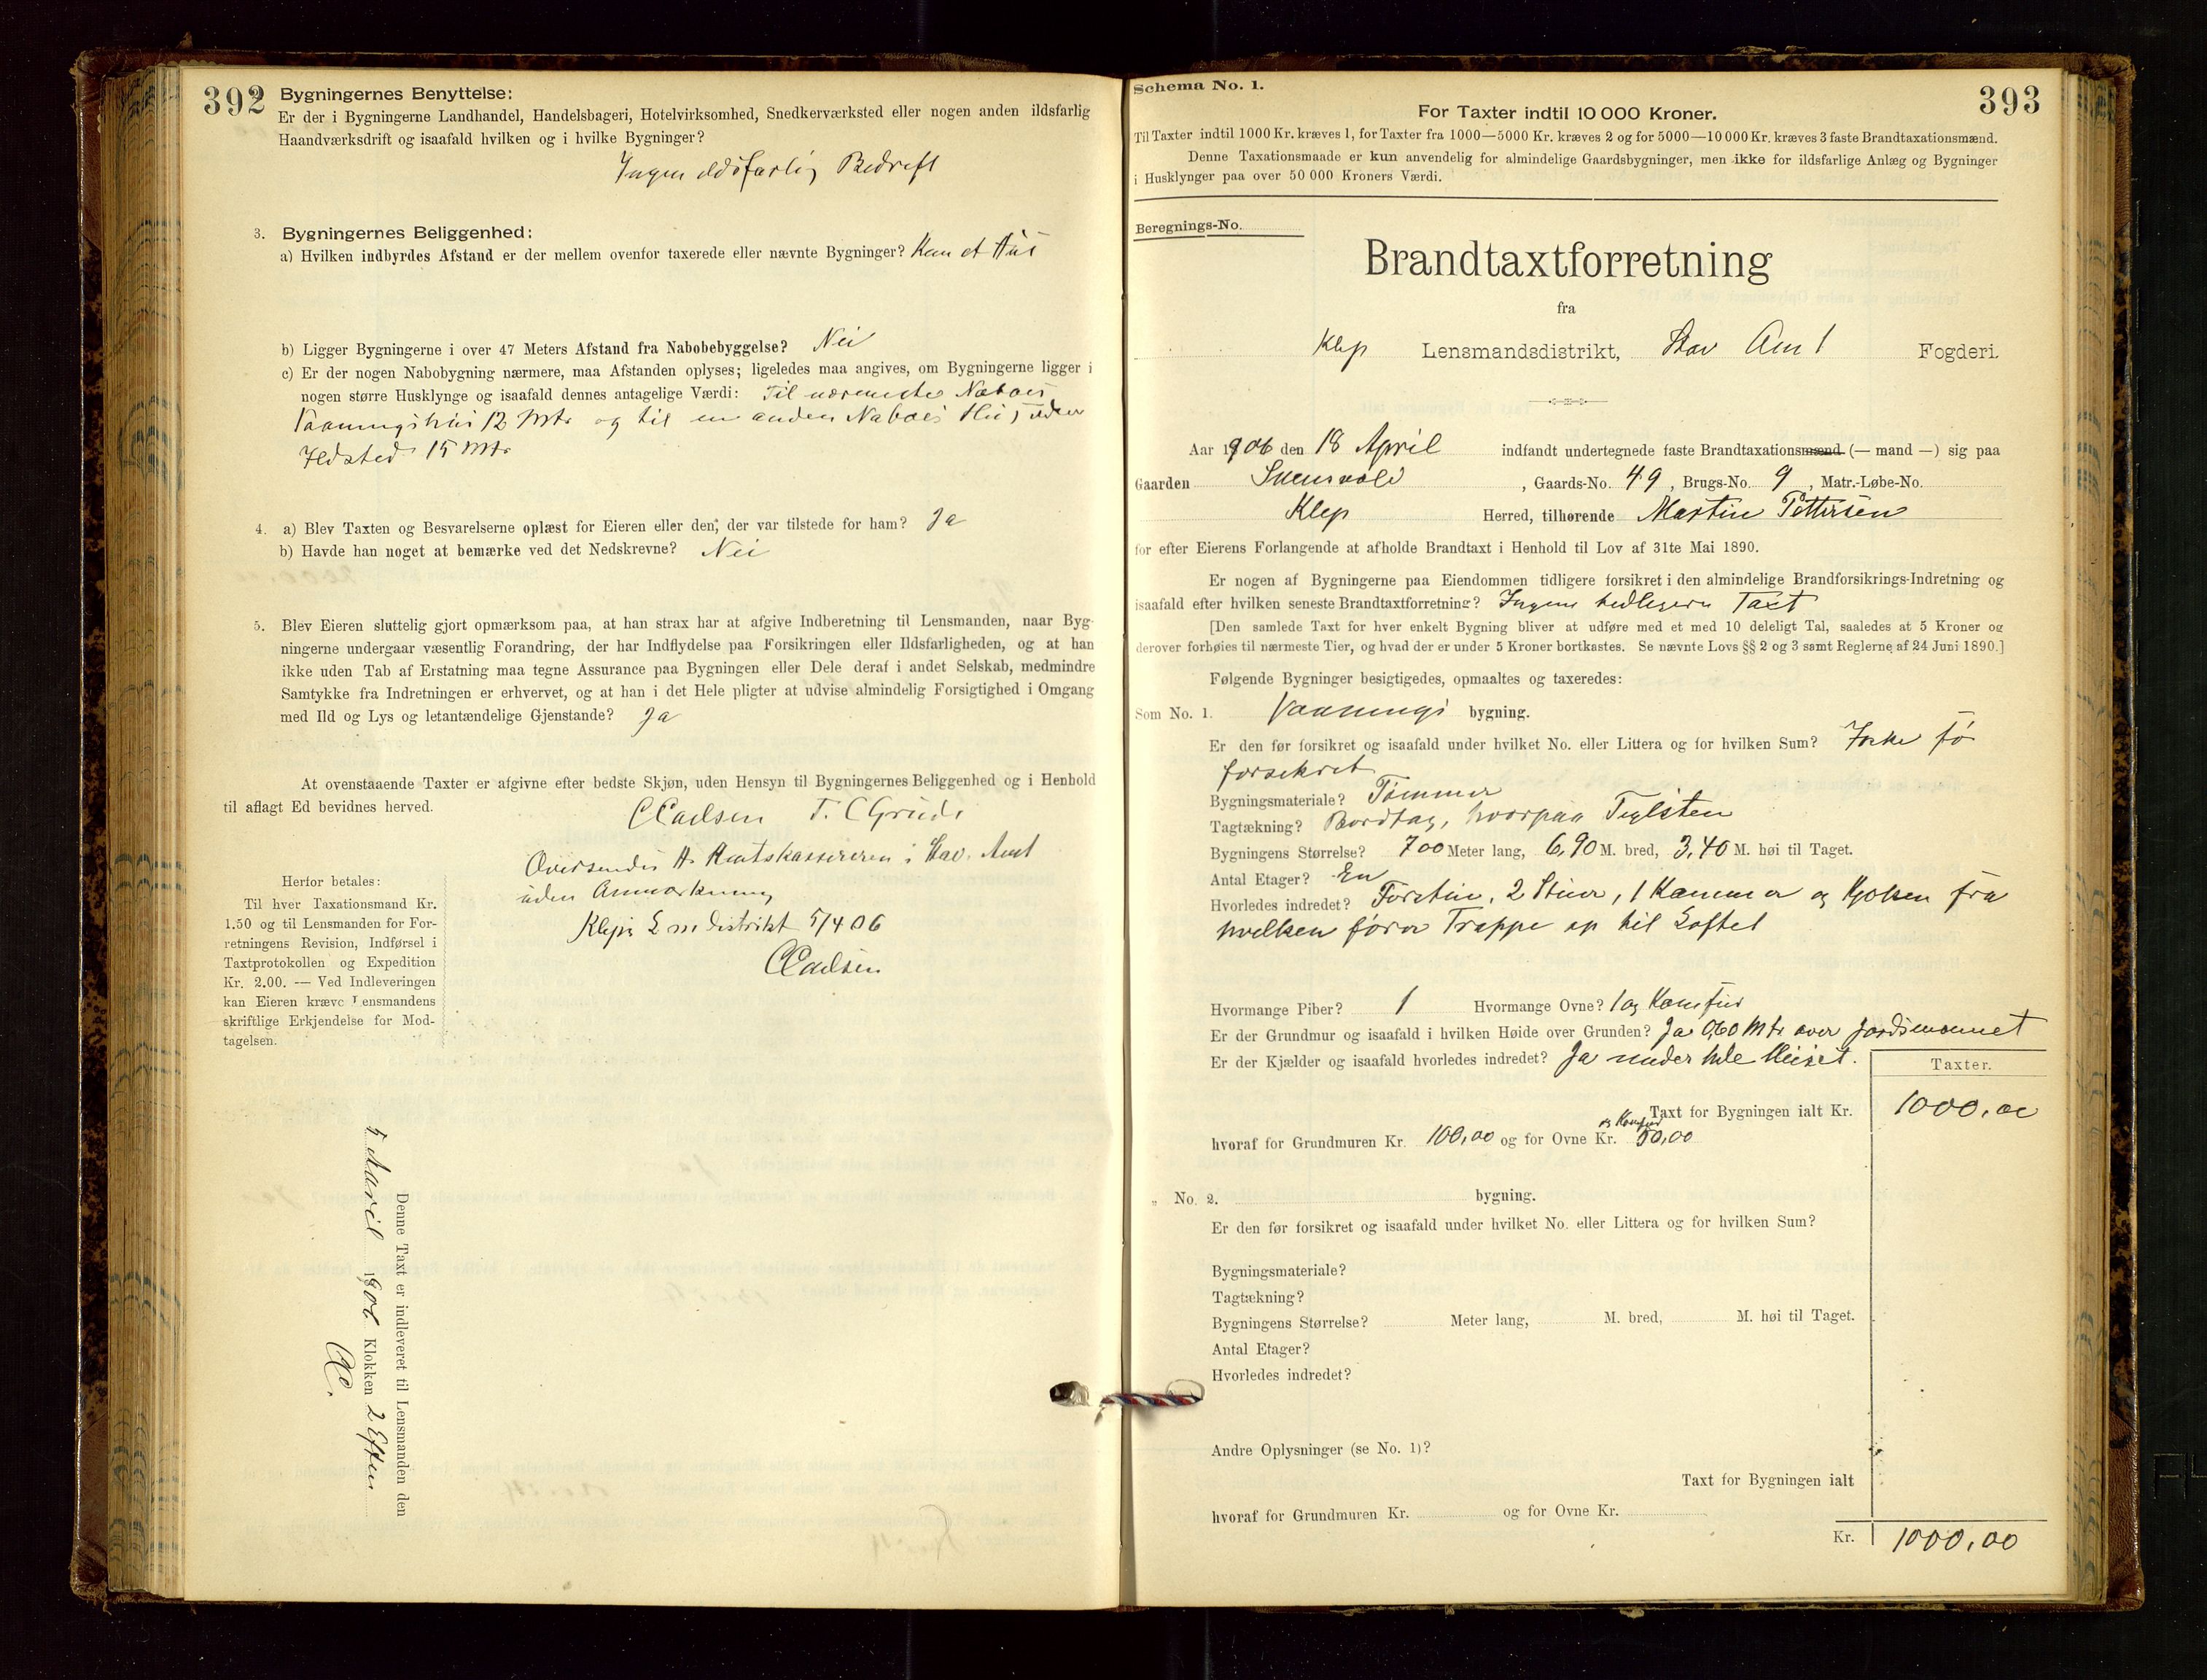 392
Bygningernes Benyttelse:
Er der i Bygningerne Landhandel, Handelsbageri, Hotelvirksomhed, Snedkerværksted eller nogen anden ildsfarlig
Haandværksdrift og isaafald hvilken og i hvilke Bygninger?
Ingen ildsfarlig Bedrift
3. Bygningernes Beliggenhed:
a) Hvilken indbyrdes Afstand er der mellem ovenfor taxerede eller nævnte Bygninger? Kun et Hus
b) Ligger Bygningerne i over 47 Meters Afstand fra Nabobebyggelse? Nei
c) Er der nogen Nabobygning nærmere, maa Afstanden oplyses; ligeledes maa angives, om Bygningerne ligger i
nogen større Husklynge og isaafald dennes antagelige Værdi: Til nærmeste Naboes
Vaaningshus 12 Mtr og til en anden Naboes Hus uden
Ildsted 15 Mtr
4. a) Blev Taxten og Besvarelserne oplæst for Eieren eller den, der var tilstede for ham? Ja
b) Havde han noget at bemærke ved det Nedskrevne? Nei
5. Blev Eieren sluttelig gjort opmærksom paa, at han strax har at afgive Indberetning til Lensmanden, naar Byg-
ningerne undergaar væsentlig Forandring, der har Indflydelse paa Forsikringen eller Ildsfarligheden, og at han
ikke uden Tab af Erstatning maa tegne Assurance paa Bygningen eller Dele deraf i andet Selskab, medmindre
Samtykke fra Indretningen er erhvervet, og at han i det Hele pligter at udvise almindelig Forsigtighed i Omgang
med Ild og Lys og letantændelige Gjenstande? Ja
At ovenstaaende Taxter er afgivne efter bedste Skjøn, uden Hensyn til Bygningernes Beliggenhed og i Henhold
til aflagt Ed bevidnes herved.
CCarlsen T. C Grude
Oversendes Hr Amtskassereren i Stav. Amt
uden Anmærkning
Klepp L m distrikt 5/4 06
CCarlsen
Herfor betales:
Til hver Taxationsmand Kr.
1.50 og til Lensmanden for For-
retningens Revision, Indførsel i
Taxtprotokollen og Expedition
Kr. 2.00. — Ved Indleveringen
kan Eieren kræve Lensmandens
skriftlige Erkjendelse for Mod-
tagelsen.
Denne Taxt er indleveret til Lensmanden den
5 April 1906 Klokken 2 Eftm
CC.
Schema No. 1.
393
For Taxter indtil 10 000 Kroner.
Til Taxter indtil 1000 Kr. kræves 1, for Taxter fra 1000—5000 Kr. kræves 2 og for 5000—10 000 Kr. kræves 3 faste Brandtaxationsmænd.
Denne Taxationsmaade er kun anvendelig for almindelige Gaardsbygninger, men ikke for ildsfarlige Anlæg og Bygninger
i Husklynger paa over 50 000 Kroners Værdi.
Beregnings-No.
Brandtaxtforretning
fra
Klep Lensmandsdistrikt, Stav Amt Fogderi.
Aar 1906 den 18 April indfandt undertegnede faste Brandtaxationsmænd (— mand —) sig paa
Gaarden , Gaards-No. 49, Brugs-No. 9, Matr.-Løbe-No.
Klep Herred, tilhørende Martin Pettersen
for efter Eierens Forlangende at afholde Brandtaxt i Henhold til Lov af 31te Mai 1890.
Er nogen af Bygningerne paa Eiendommen tidligere forsikret i den almindelige Brandforsikrings-Indretning og
isaafald efter hvilken seneste Brandtaxtforretning? Ingen tidligere Taxt
[Den samlede Taxt for hver enkelt Bygning bliver at udføre med et med 10 deleligt Tal, saaledes at 5 Kroner og
derover forhøies til nærmeste Tier, og hvad der er under 5 Kroner bortkastes. Se nævnte Lovs §§ 2 og 3 samt Reglerne af 24 Juni 1890.]
Følgende Bygninger besigtigedes, opmaaltes og taxeredes:
Som No. 1. Vaanings bygning.
Er den før forsikret og isaafald under hvilket No. eller Littera og for hvilken Sum? Ikke før
forsikret
Bygningsmateriale? Tømmer
Tagtækning? Bordtag, hvorpaa Teglsten
Bygningens Størrelse? 7.00 Meter lang, 6,90 M. bred, 3,40 M. høi til Taget.
Antal Etager? En
Hvorledes indredet? Forstue, 2 Stuer, 1 Kammer og Kjøkken fra
hvilken fører Trappe op til Loftet
Hvormange Piber? 1 Hvormange Ovne? 1 og Komfur
Er der Grundmur og isaafald i hvilken Høide over Grunden? Ja 0,60 Mtr over Jordsmonnet
Er der Kjælder og isaafald hvorledes indredet? Ja under hele Huset.
Taxter.
Taxt for Bygningen ialt Kr. 1000,00
og Komfur
hvoraf for Grundmuren Kr. 100,00 og for Ovne Kr. 50,00
„ No. 2. bygning.
Er den før forsikret og isaafald under hvilket No. eller Littera og for hvilken Sum?
Bygningsmateriale?
Tagtækning?
Bygningens Størrelse? Meter lang, M. bred, M. høi til Taget.
Antal Etager?
Hvorledes indredet?
Andre Oplysninger (se No. 1)?
Taxt for Bygningen ialt
hvoraf for Grundmuren Kr. og for Ovne Kr.
Kr. 1000,00